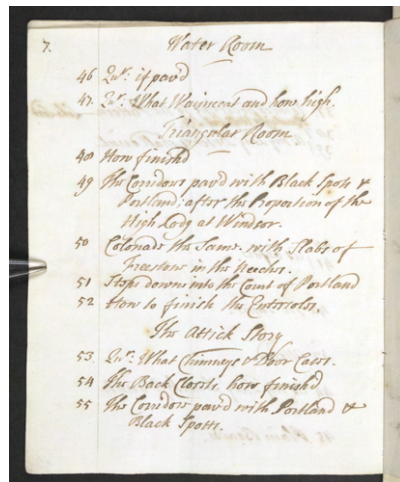 7.
Water Room
46 Qu.r if pav'd
47. Qu.r What Wainscoat and how high.
Triangular Room
48 How finish'd
49 The Corridore pav'd with Black Spots &
Portland; after the Proportion of the
High Lodg at Windsor.
50 Colonade the Same. with Slabs of
Freestone in the Neeches.
51 Steps down into the Court of Portland
52 How to finish the Entersoles.
The Attick Story
53. Qu.r What Chimneys & Door Cases.
54 The Back Closets how finish'd
55 The Corridore pav'd with Portland &
Black Spotts.